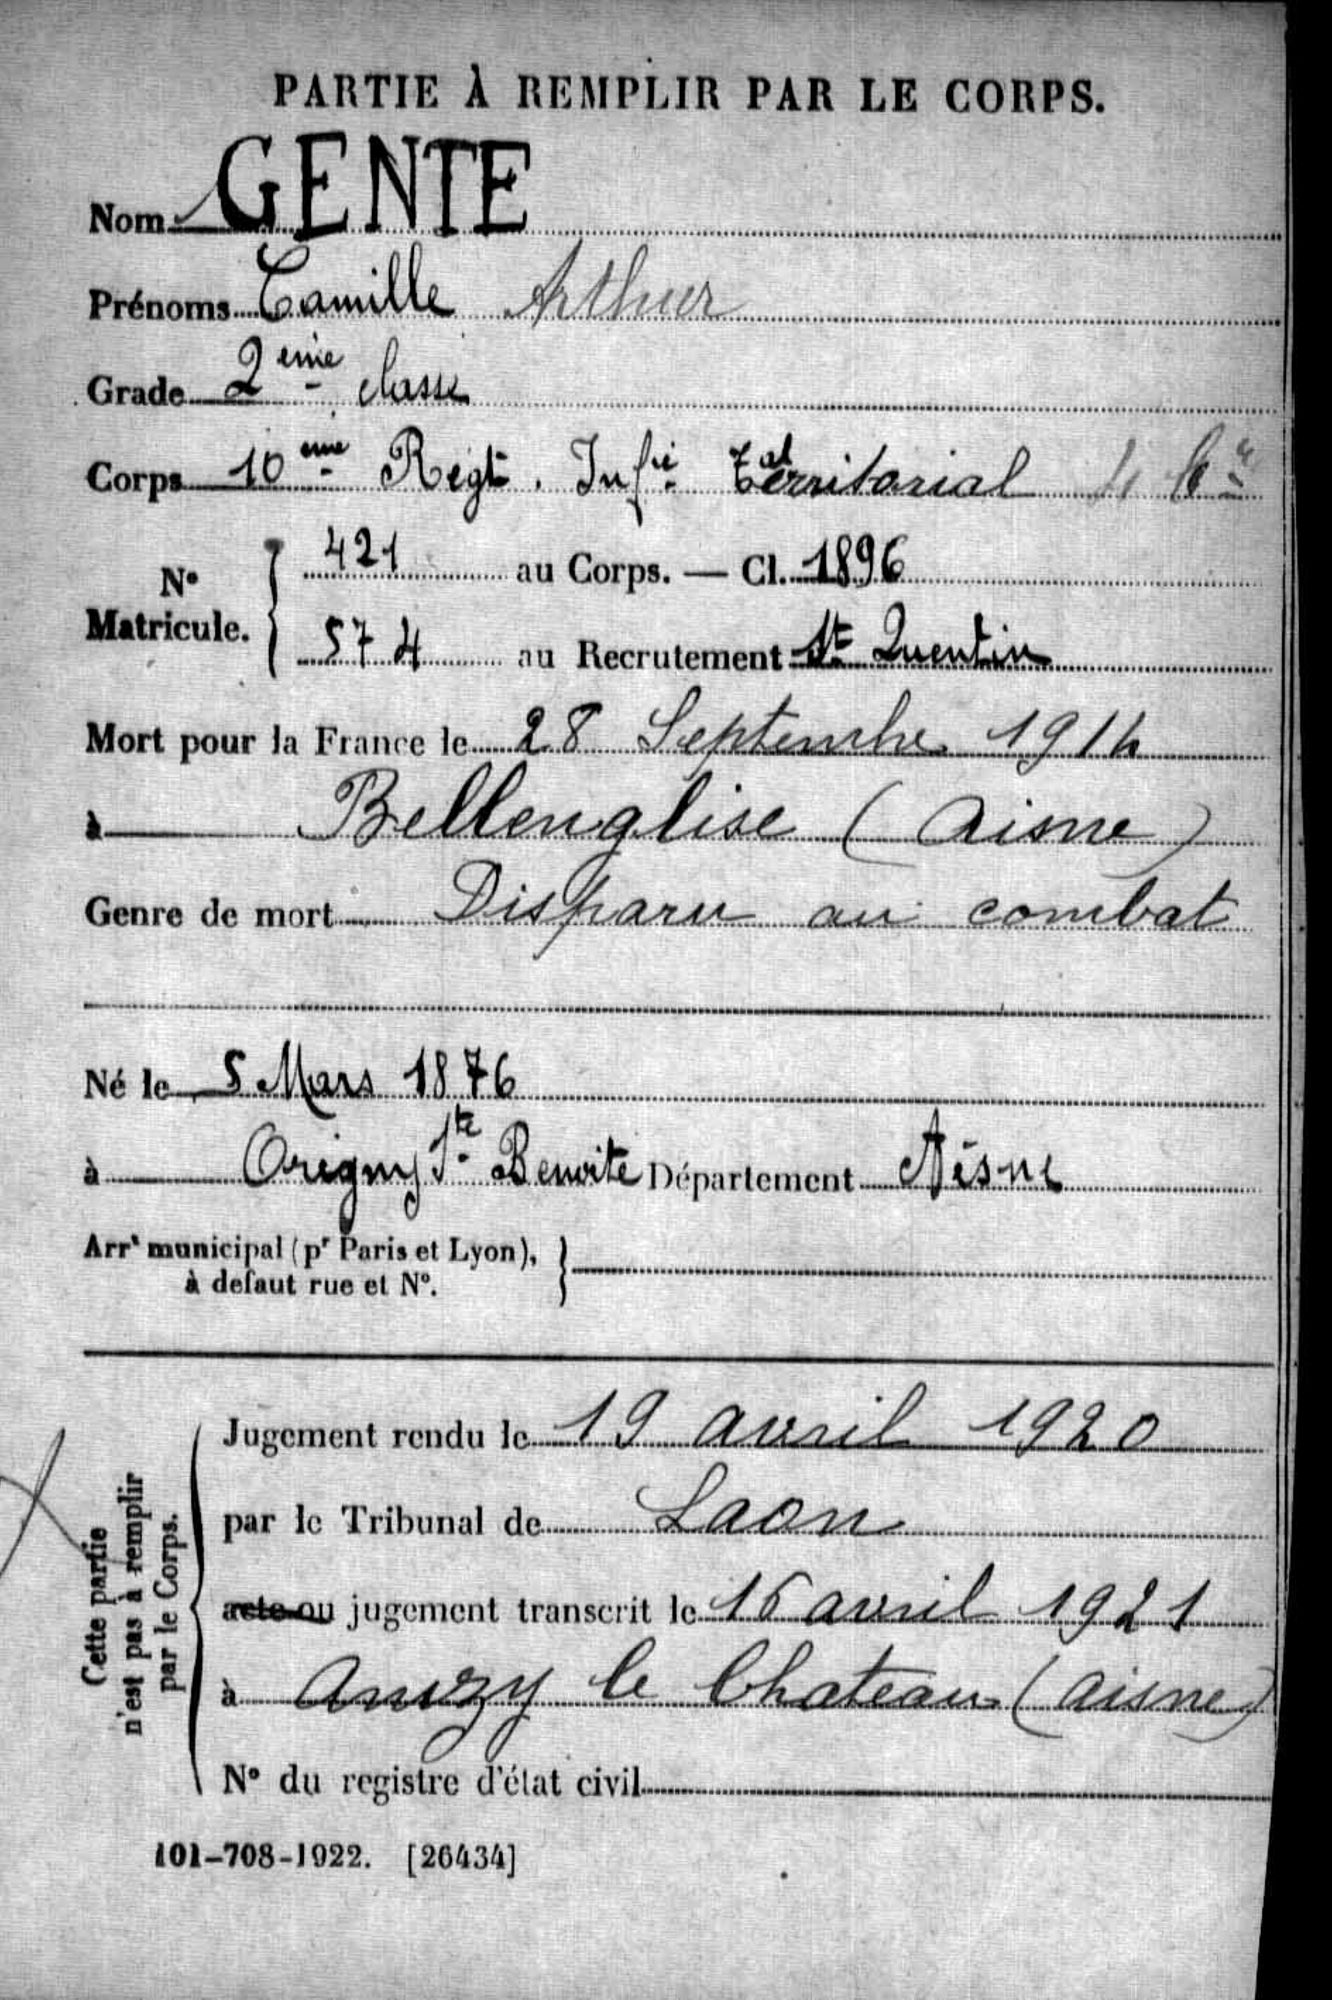 PARTIE À REMPLIR PAR LE CORPS.
Nom GENTE
Prénoms Camille Arthur
Grade 2ème classe
Corps 10ème Régt. Infie Territorial
N° Matricule. { 421 au Corps. — Cl. 1896
574 au Recrutement St Quentin
Mort pour la France le 28 Septembre 1914
à Bellenglise (Aisne)
Genre de mort Disparu au combat
Né le 5 Mars 1876
à Origny Ste Benoite Département Aisne
Arrt municipal (pr Paris et Lyon), à defaut rue et N°. }
Cette partie n'est pas à remplir par le Corps.
Jugement rendu le 19 avril 1920
par le Tribunal de Laon
acte ou jugement transcrit le 16 avril 1921
à Anizy le Chateau (aisne)
N° du registre d'état civil
101-708-1922. [26434]